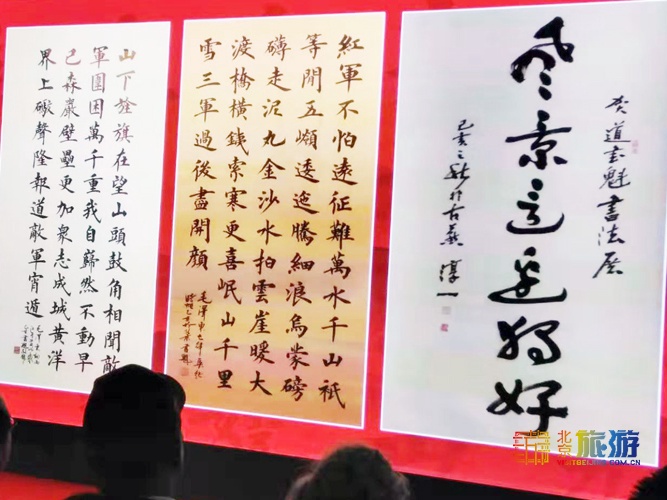 山下旌旗在望山頭鼓角相聞敵
軍圍困萬千重我自巋然不動早
己森嚴壁壘更加衆志成城黃洋
界上礮聲隆報道敵軍宵遁
紅軍不怕遠征難萬水千山衹
等閒五嶺逶迤騰細浪烏蒙磅
礴走泥丸金沙水拍雲崖暖大
渡橋橫鐵索寒更喜岷山千里
雪三軍過後盡開顏
毛澤東
賀道魁書法展
風景這邊獨好
己亥之秋於古燕 淳一
北京旅游
VISITBEIJING.COM.CN